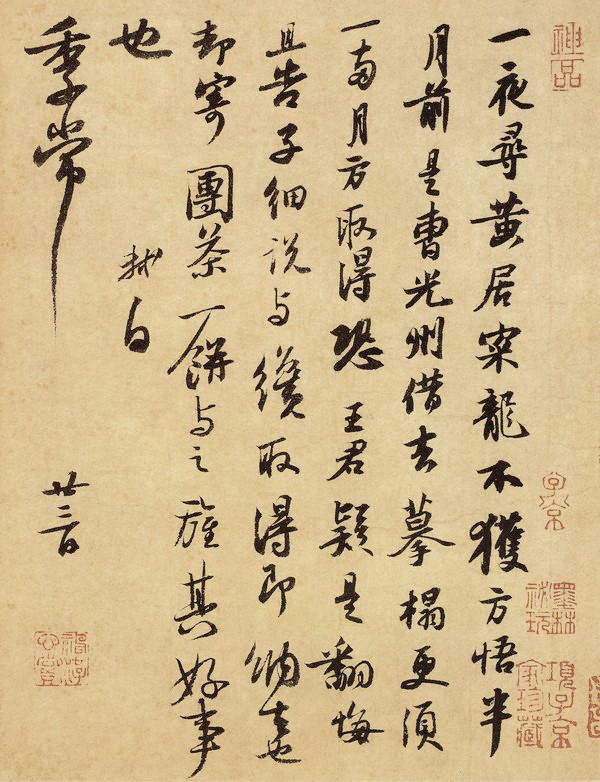 一夜尋黃居寀龍不獲方悟半
月前是曹光州借去摹榻更須
一兩月方取得恐王君疑是翻悔
且告子細說與纔取得即納去也
却寄團茶一餅與之旌其好事
也
軾白
季常
廿三日
神品
子京
墨林祕玩
項子京家珍藏